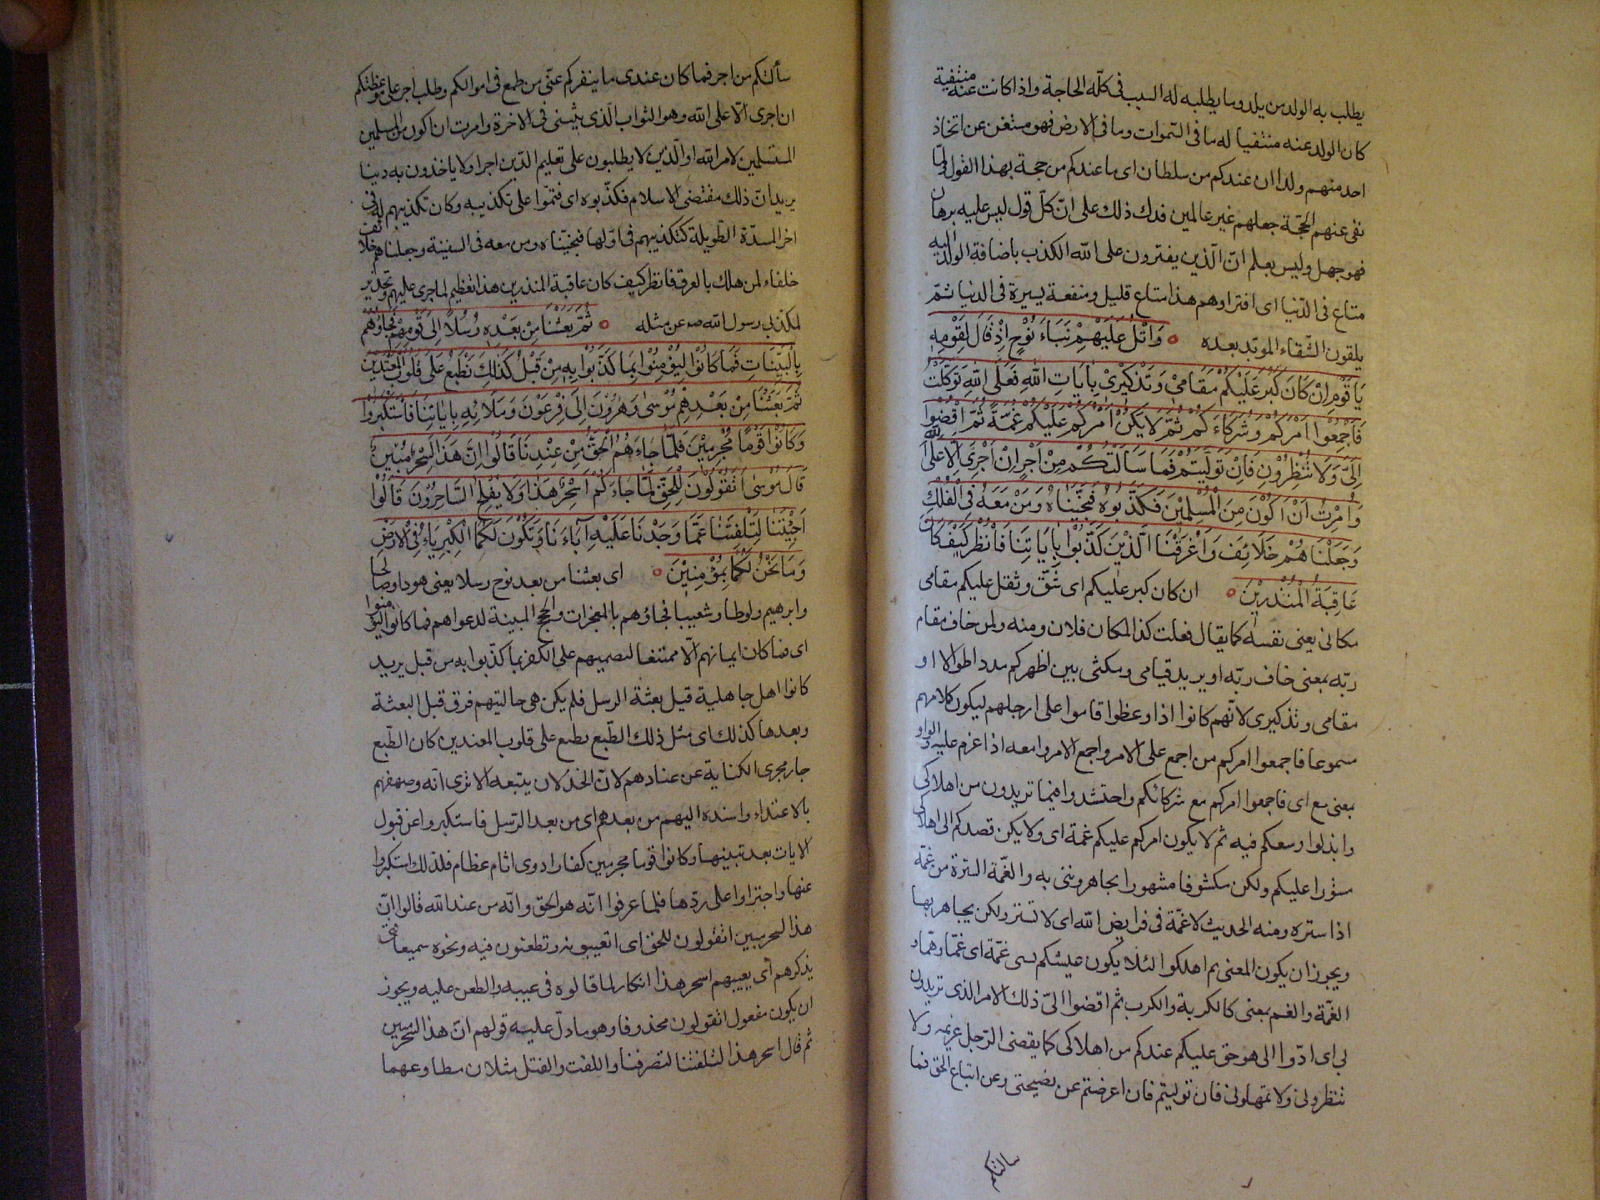 يطلب به الولد من يلد وما يطلبه له السبب فى كلّه الحاجة واذا كانت عنه منتفية
كان الولد عنه منتفيا له ما فى السّموات وما فى الارض فهو مستغن عن اتخاذ
احد منهم ولدا ان عندكم من سلطان اى ما عندكم من حجة بهذا القول ولمّا
نفى عنهم الحجّة جعلهم غير عالمين فدل ذلك على انّ كلّ قول ليس عليه برهان
فهو جهل وليس بعلم انّ الّذين يفترون على الله الكذب باضافة الولد اليه
متاع فى الدّنيا اى افتراؤهم هذا متاع قليل ومنفعة يسيرة فى الدنيا ثمّ
يلقون الشّقاء المؤبّد بعده وَاتْلُ عَلَيْهِمْ نَبَاءَ نُوْحٍ اِذْ قَالَ لِقَوْمِهِ
يَا قَوْمِ اِنْ كَانَ كَبُرَ عَلَيْكُمْ مَقَامِىْ وَتَذْكِيرِىْ بِاٰيَاتِ اللهِ فَعَلَى اللهِ تَوَكَّلْتُ
فَاَجْمِعُوْا اَمْرَكُمْ وَشُرَكَاءَكُمْ ثُمَّ لَا يَكُنْ اَمْرُكُمْ عَلَيْكُمْ غُمَّةً ثُمَّ اقْضُوْا
اِلَىَّ وَلَا تُنْظِرُوْنِ فَاِنْ تَوَلَّيْتُمْ فَمَا سَاَلْتُكُمْ مِنْ اَجْرٍ اِنْ اَجْرِىَ اِلَّا عَلَى اللهِ
وَاُمِرْتُ اَنْ اَكُوْنَ مِنَ الْمُسْلِمِيْنَ فَكَذَّبُوْهُ فَنَجَّيْنَاهُ وَمَنْ مَعَهُ فِى الْفُلْكِ
وَجَعَلْنَاهُمْ خَلَائِفَ وَاَغْرَقْنَا الَّذِيْنَ كَذَّبُوْا بِاٰيَاتِنَا فَانْظُرْ كَيْفَ كَانَ
عَاقِبَةُ الْمُنْذَرِيْنَ ان كان كبر عليكم اى شقّ وثقل عليكم مقامى
مكانى يعنى نفسه كما يقال فعلت كذا لمكان فلان ومنه ولمن خاف مقام
ربّه بمعنى خاف ربّه او يريد قيامى ومكثى بين اظهركم مددا طوالا او
مقامى وتذكيرى لانّهم كانوا اذا وعظوا قاموا على ارجلهم ليكون كلامهم
مسموعا فاجمعوا امركم من اجمع على الامر واجمع الامر وازمعه اذا عزم عليه والواو
بمعنى مع اى فاجمعوا امركم مع شركائكم واحتشدوا فيما تريدون من اهلاكى
وابذلوا وسعكم فيه ثم لا يكون امركم عليكم غمة اى ولا يكن قصدكم الى اهلاكى
مستورا عليكم ولكن مكشوفا مشهورا تجاهروننى به والغمّة السترة من غمّه
اذا ستره ومنه الحديث لا غمّة فى فرايض الله اى لا تستر ولكن يجاهر بها
ويجوز ان يكون المعنى ثم اهلكوا لئلا يكون عيشكم بسى غمّة اى غمّا وهمّا و
الغمّة والغم بمعنى كالكربة والكرب ثم اقضوا الىّ ذلك الامر الذى تريدون
بى اى ادّوا الى هو حق عليكم عندكم من اهلاكى كما يقضى الرّجل غريمه ولا
تنظرونى ولا تمهلونى فان توليتم فان اعرضتم عن نصيحتى وعن اتباع الحق فما
سالتكم
سألتكم من اجر فما كان عندى ما ينفركم عنّى من طمع فى اموالكم وطلب اجر على موعظتكم
ان اجرى الّا على الله وهو الثواب الّذى يثيبنى فى الاخرة وامرت ان اكون من المسلمين
المستسلمين لامر الله او الّذين لا يطلبون على تعليم الدّين اجرا ولا ياخذون به دينا
يريد انّ ذلك مقتضى الاسلام فكذّبوه اى فتمّوا على تكذيبه وكان تكذيبهم له فى
اخر المدّة الطّويلة كتكذيبهم فى اوّلها فنجّيناه ومن معه فى السفينة وجعلناهم خلائف
خلفاء لمن هلك بالغرق فانظر كيف كان عاقبة المنذرين هذا تعظيم لما جرى عليهم وتحذير
لمكذبى رسول الله صه عن مثله ثُمَّ بَعَثْنَا مِنْ بَعْدِهِ رُسُلًا اِلَى قَوْمِهِمْ فَجَاؤُهُمْ
بِالْبَيِّنَاتِ فَمَا كَانُوْا لِيُؤْمِنُوْا بِمَا كَذَّبُوْا بِهِ مِنْ قَبْلُ كَذَلِكَ نَطْبَعُ عَلَى قُلُوْبِ الْمُعْتَدِيْنَ
ثُمَّ بَعَثْنَا مِنْ بَعْدِهِمْ مُوْسٰى وَهٰرُوْنَ اِلٰى فِرْعَوْنَ وَمَلَائِهِ بِاٰيَاتِنَا فَاسْتَكْبَرُوْا
وَكَانُوْا قَوْمًا مُجْرِمِيْنَ فَلَمَّا جَاءَهُمُ الْحَقُّ مِنْ عِنْدِنَا قَالُوْا اِنَّ هَذَا لَسِحْرٌ مُبِيْنٌ
قَالَ مُوْسٰى اَتَقُوْلُوْنَ لِلْحَقِّ لَمَّا جَاءَكُمْ اَسِحْرٌ هَذَا وَلَا يُفْلِحُ السَّاحِرُوْنَ قَالُوْا
اَجِئْتَنَا لِتَلْفِتَنَا عَمَّا وَجَدْنَا عَلَيْهِ اٰبَاءَنَا وَتَكُوْنَ لَكُمَا الْكِبْرِيَاءُ فِى الْاَرْضِ
وَمَا نَحْنُ لَكُمَا بِمُؤْمِنِيْنَ اى بعثنا من بعد نوح رسلا يعنى هودا وصالحا
وابرهيم ولوطا وشعيبا فجاؤهم بالمعجزات والحجج المبينة لدعواهم فما كانوا ليؤمنوا
اى فما كان ايمانهم الّا ممتنعا لتصميمهم على الكفر بما كذّبوا به من قبل يريد
كانوا اهل جاهلية قبل بعثة الرسل فلم يكن فى حالتيهم فرق قبل البعثة
وبعدها كذلك اى مثل ذلك الطّبع نطبع على قلوب المعتدين كان الطّبع
جار مجرى الكناية عن عنادهم لانّ الخذلان يتبعه الا ترى انّه وصفهم
بالاعتداء واسنده اليهم من بعدهم اى من بعد الرّسل فاستكبروا عن قبول
الايات بعد تبينها وكانوا قوما مجرمين كفارا ذوى اثام عظام فلذلك استكبروا
عنها واجترأوا على ردّها فلما عرفوا انّه هو الحق وانّه من عند الله قالوا انّ
هذا لسحر مبين اتقولون للحق اى اتعيبونه وتطعنون فيه ونحوه سمعنا فتى
يذكرهم اى يعيبهم اسحر هذا انكار لما قالوه فى عيبه والطعن عليه ويجوز
ان يكون مفعول اتقولون محذوفا وهو ما دلّ عليه قولهم انّ هذا لسحر مبين
ثم قال اسحر هذا لتلفتنا لتصرفنا واللفت والفتل مثلان مطاوعهما